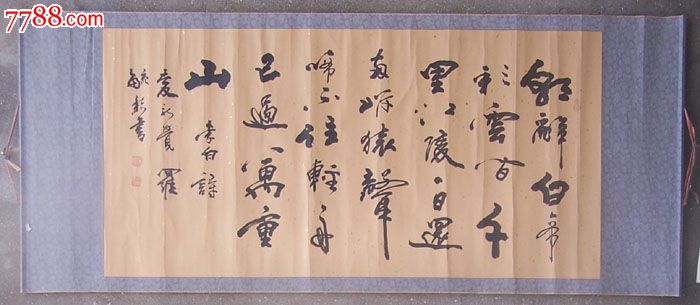 7788.com
朝辭白帝
彩雲間千
里江陵一日還
兩岸猿聲
啼不住輕舟
已過萬重
山 李白詩
愛新覺羅
毓 書